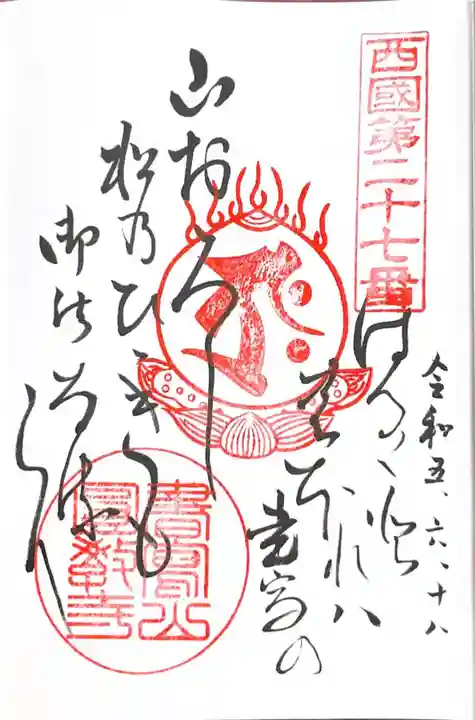 西國第二十七番
令和五、六、十八
はる〱と
登れハ
書寫の
山おろし
松乃ひゞきも
御法なるらん
書寫山
圓教寺